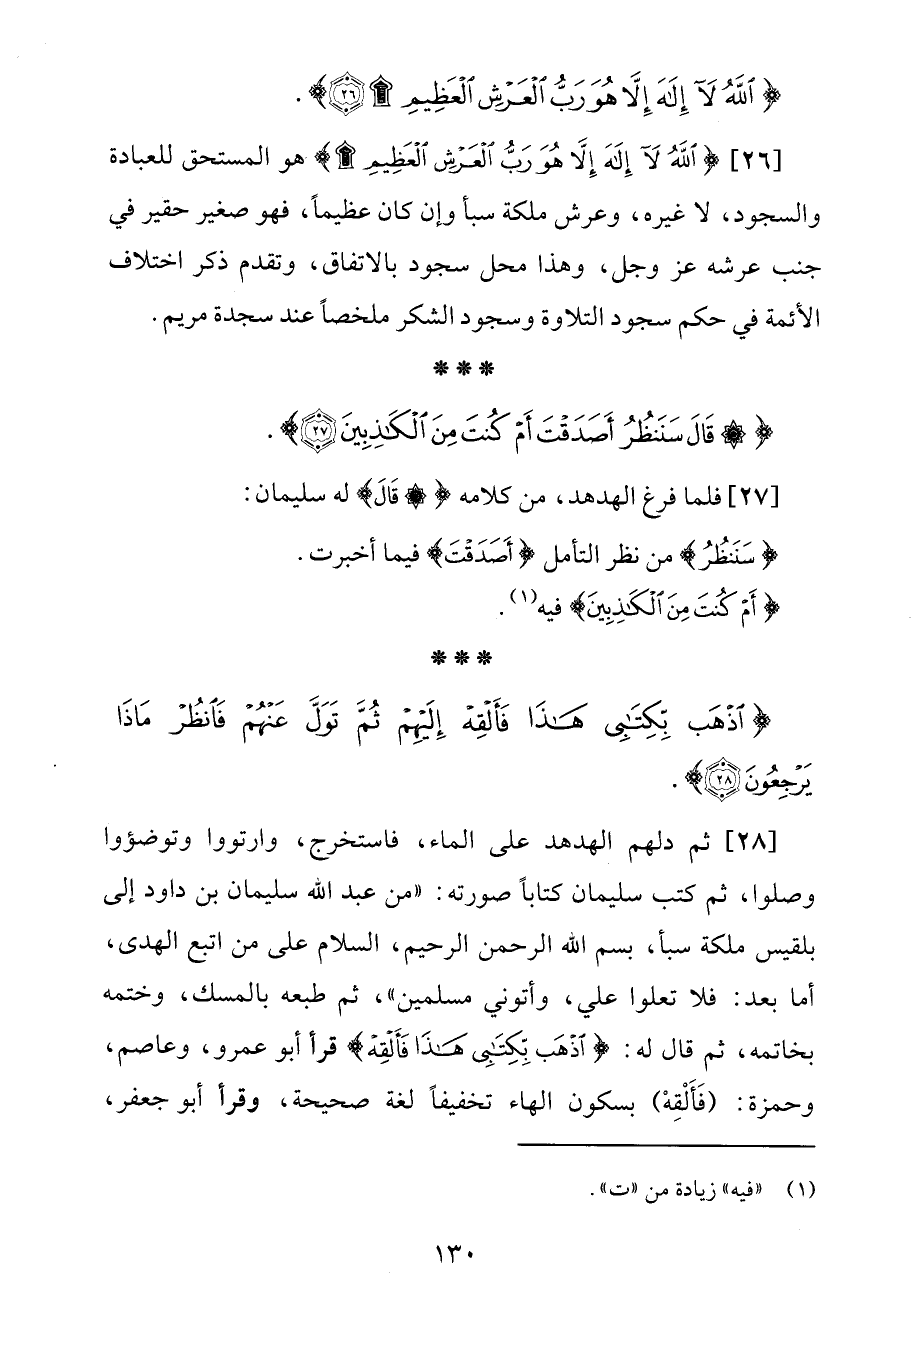 ﴿ ٱللَّهُ لَآ إِلَٰهَ إِلَّا هُوَ رَبُّ ٱلْعَرْشِ ٱلْعَظِيمِ ۩ ٢٦ ﴾.
[٢٦] ﴿ ٱللَّهُ لَآ إِلَٰهَ إِلَّا هُوَ رَبُّ ٱلْعَرْشِ ٱلْعَظِيمِ ۩﴾ هو المستحق للعبادة
والسجود، لا غيره، وعرش ملكة سبأ وإن كان عظيماً، فهو صغير حقير في
جنب عرشه عز وجل، وهذا محل سجود بالاتفاق، وتقدم ذكر اختلاف
الأئمة في حكم سجود التلاوة وسجود الشكر ملخصاً عند سجدة مريم.
* * *
﴿ ۞ قَالَ سَنَنظُرُ أَصَدَقْتَ أَمْ كُنتَ مِنَ ٱلْكَٰذِبِينَ ٢٧ ﴾.
[٢٧] فلما فرغ الهدهد، من كلامه ﴿ ۞ قَالَ﴾ له سليمان:
﴿ سَنَنظُرُ﴾ من نظر التأمل ﴿ أَصَدَقْتَ﴾ فيما أخبرت.
﴿ أَمْ كُنتَ مِنَ ٱلْكَٰذِبِينَ﴾ فيه(١).
* * *
﴿ ٱذْهَب بِّكِتَٰبِى هَٰذَا فَأَلْقِهْ إِلَيْهِمْ ثُمَّ تَوَلَّ عَنْهُمْ فَٱنظُرْ مَاذَا
يَرْجِعُونَ ٢٨ ﴾.
[٢٨] ثم دلهم الهدهد على الماء، فاستخرج، وارتووا وتوضؤوا
وصلوا، ثم كتب سليمان كتاباً صورته: «من عبد الله سليمان بن داود إلى
بلقيس ملكة سبأ، بسم الله الرحمن الرحيم، السلام على من اتبع الهدى،
أما بعد: فلا تعلوا علي، وأتوني مسلمين»، ثم طبعه بالمسك، وختمه
بخاتمه، ثم قال له: ﴿ ٱذْهَب بِّكِتَٰبِى هَٰذَا فَأَلْقِهْ﴾ قرأ أبو عمرو، وعاصم،
وحمزة: (فَأَلْقِهْ) بسكون الهاء تخفيفاً لغة صحيحة، وقرأ أبو جعفر،
(١) «فيه» زيادة من «ت».
١٣٠